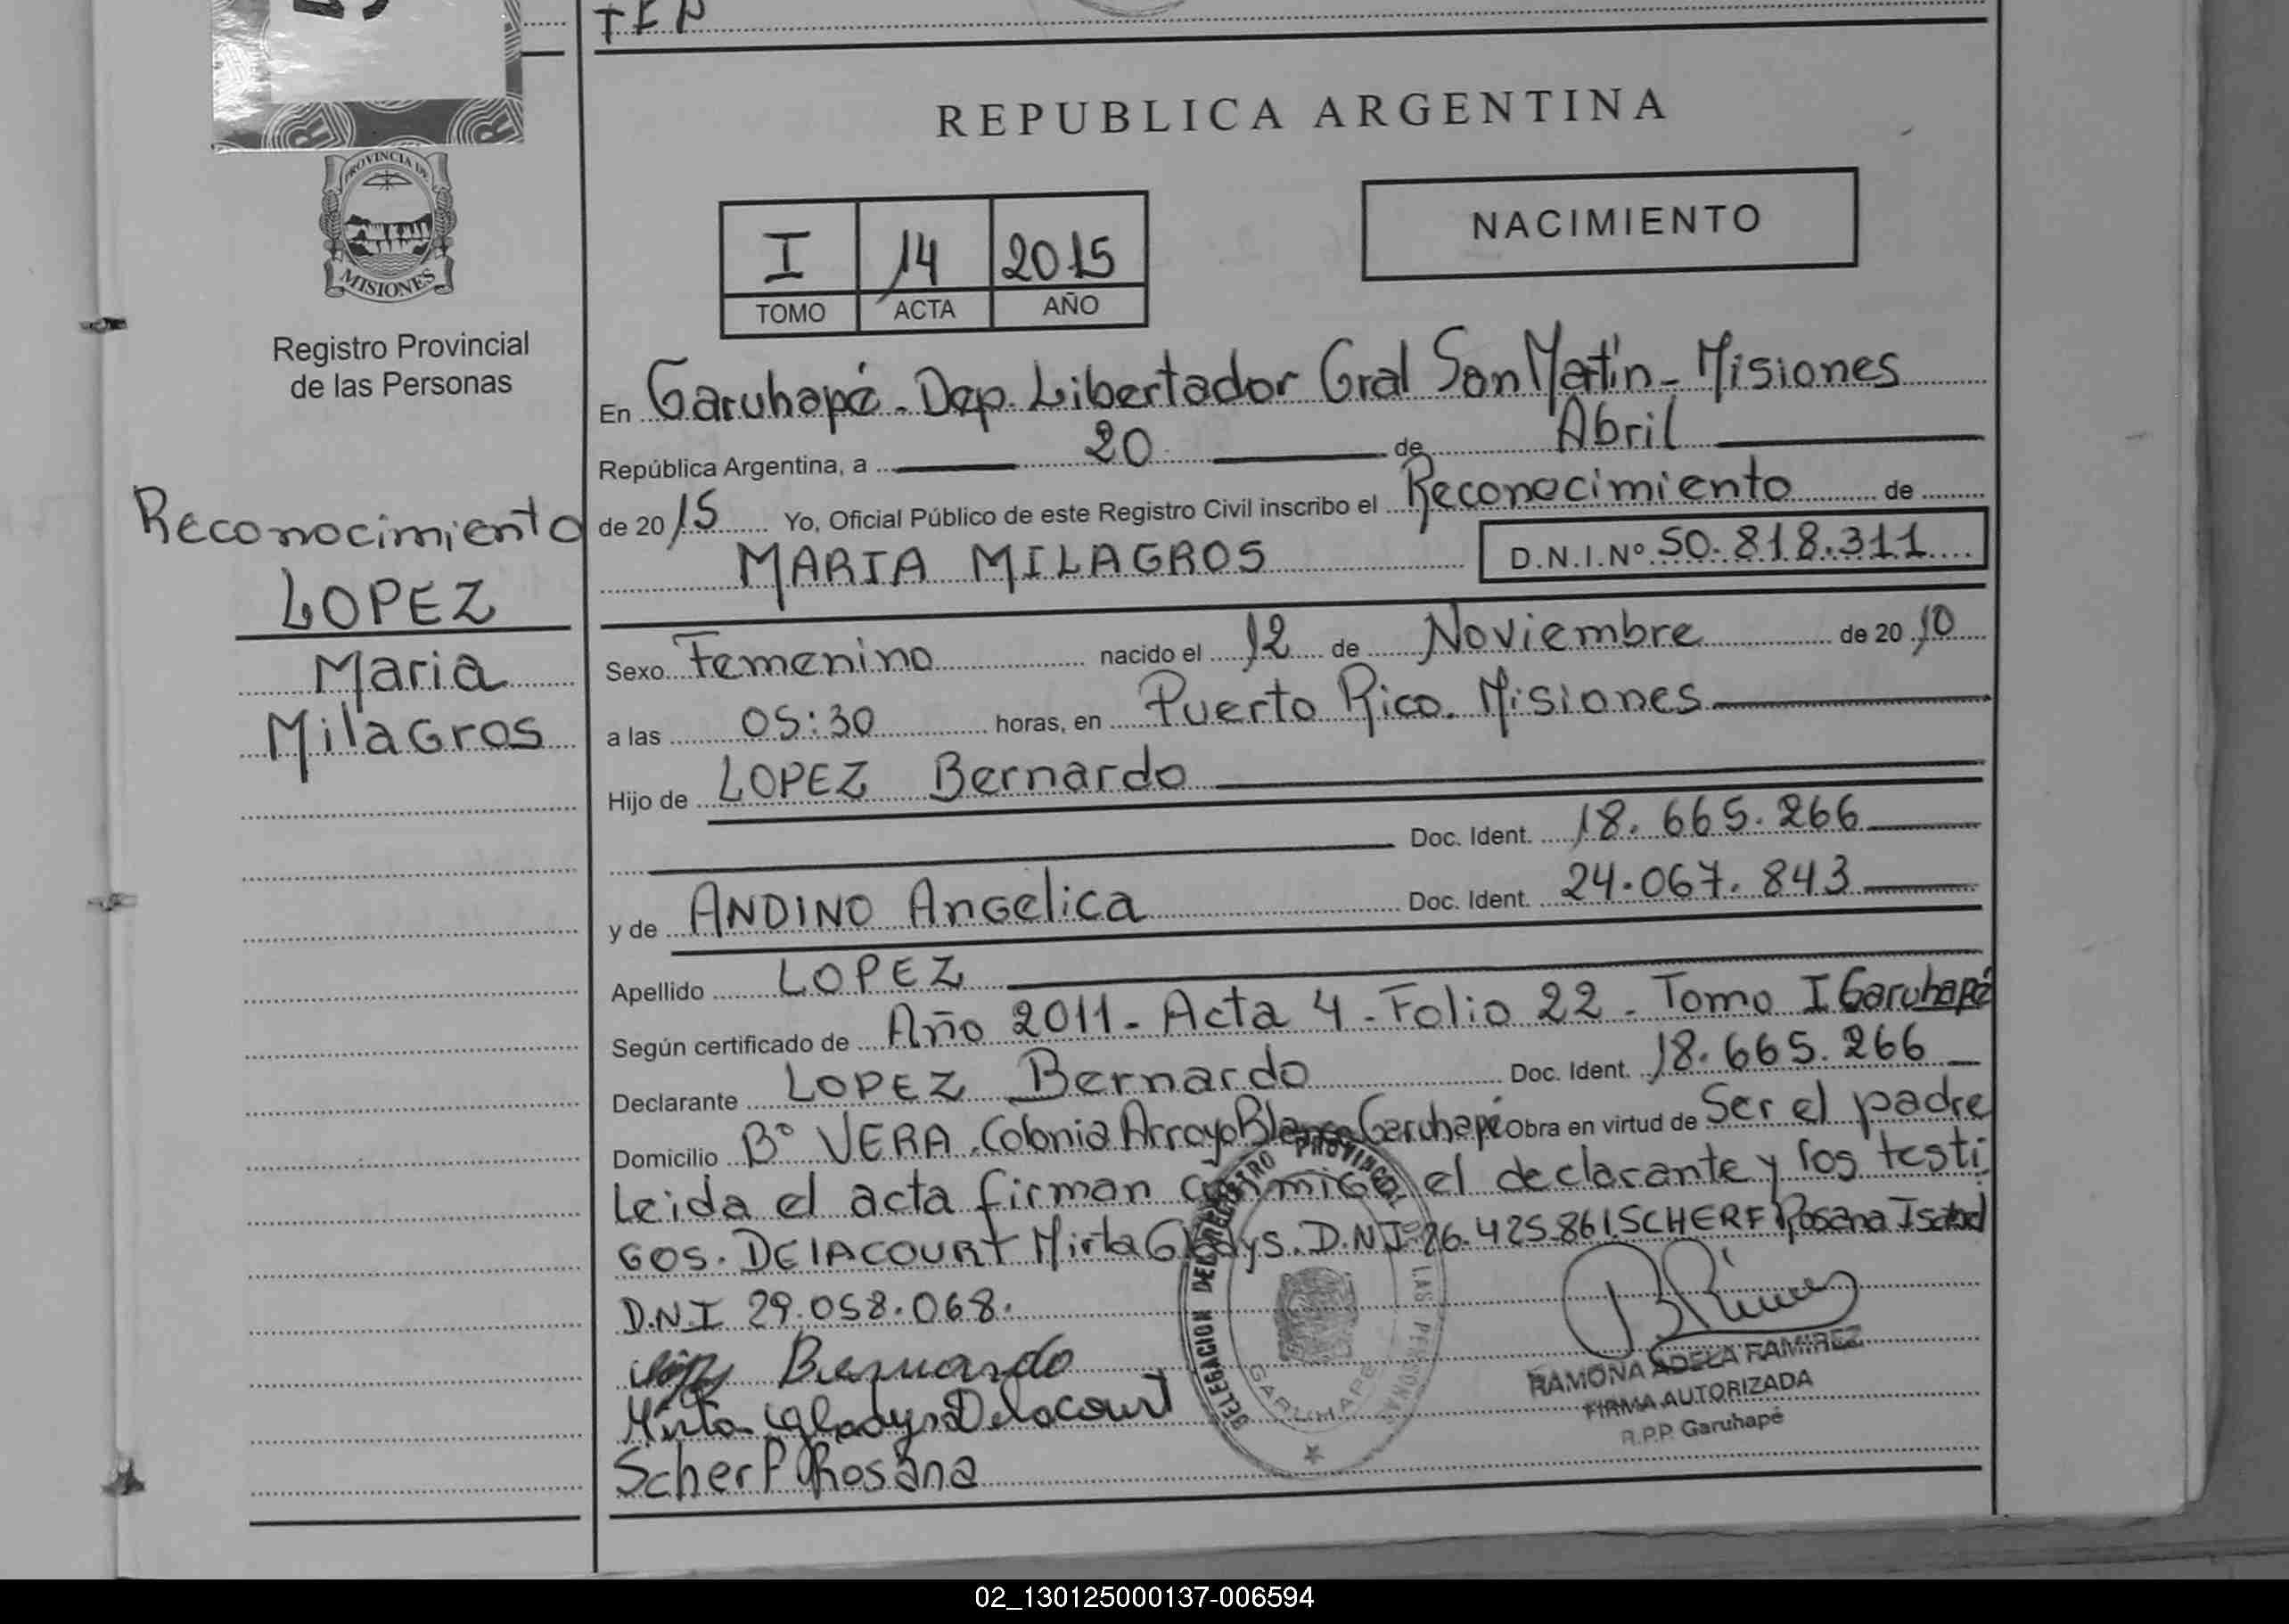 REPUBLICA ARGENTINA
NACIMIENTO
I 14 2015
TOMO ACTA AÑO
PROVINCIA DE
MISIONES
Registro Provincial
de las Personas
Reconocimiento
LOPEZ
Maria
Milagros
En Garuhapé. Dep. Libertador Gral San Martín - Misiones
República Argentina, a 20 de Abril
de 2015 Yo, Oficial Público de este Registro Civil inscribo el Reconocimiento de
MARIA MILAGROS D.N.I.Nº 50.818.311
Sexo Femenino nacido el 12 de Noviembre de 2010
a las 05:30 horas, en Puerto Rico. Misiones
Hijo de LOPEZ Bernardo
Doc. Ident. 18.665.266
y de ANDINO Angelica Doc. Ident. 24.067.843
Apellido LOPEZ
Según certificado de Año 2011 - Acta 4 - Folio 22 - Tomo I Garuhapé
Declarante LOPEZ Bernardo Doc. Ident. 18.665.266
Domicilio Bº VERA. Colonia Arroyo Blanco Garuhapé Obra en virtud de Ser el padre
Leida el acta firman conmigo el declarante y los testi
gos. DELACOURT Mirta Gladys. D.N.I º 26.425.861 SCHERF Rosana Isabel
D.N.I 29.058.068.
Bernardo
Mirta Gladys Delacourt
Scherf Rosana
DELEGACION DEL REGISTRO PROVINCIAL DE LAS PERSONAS
GARUHAPE
RAMONA ADELA RAMIREZ
FIRMA AUTORIZADA
R.P.P. Garuhapé
02_130125000137-006594